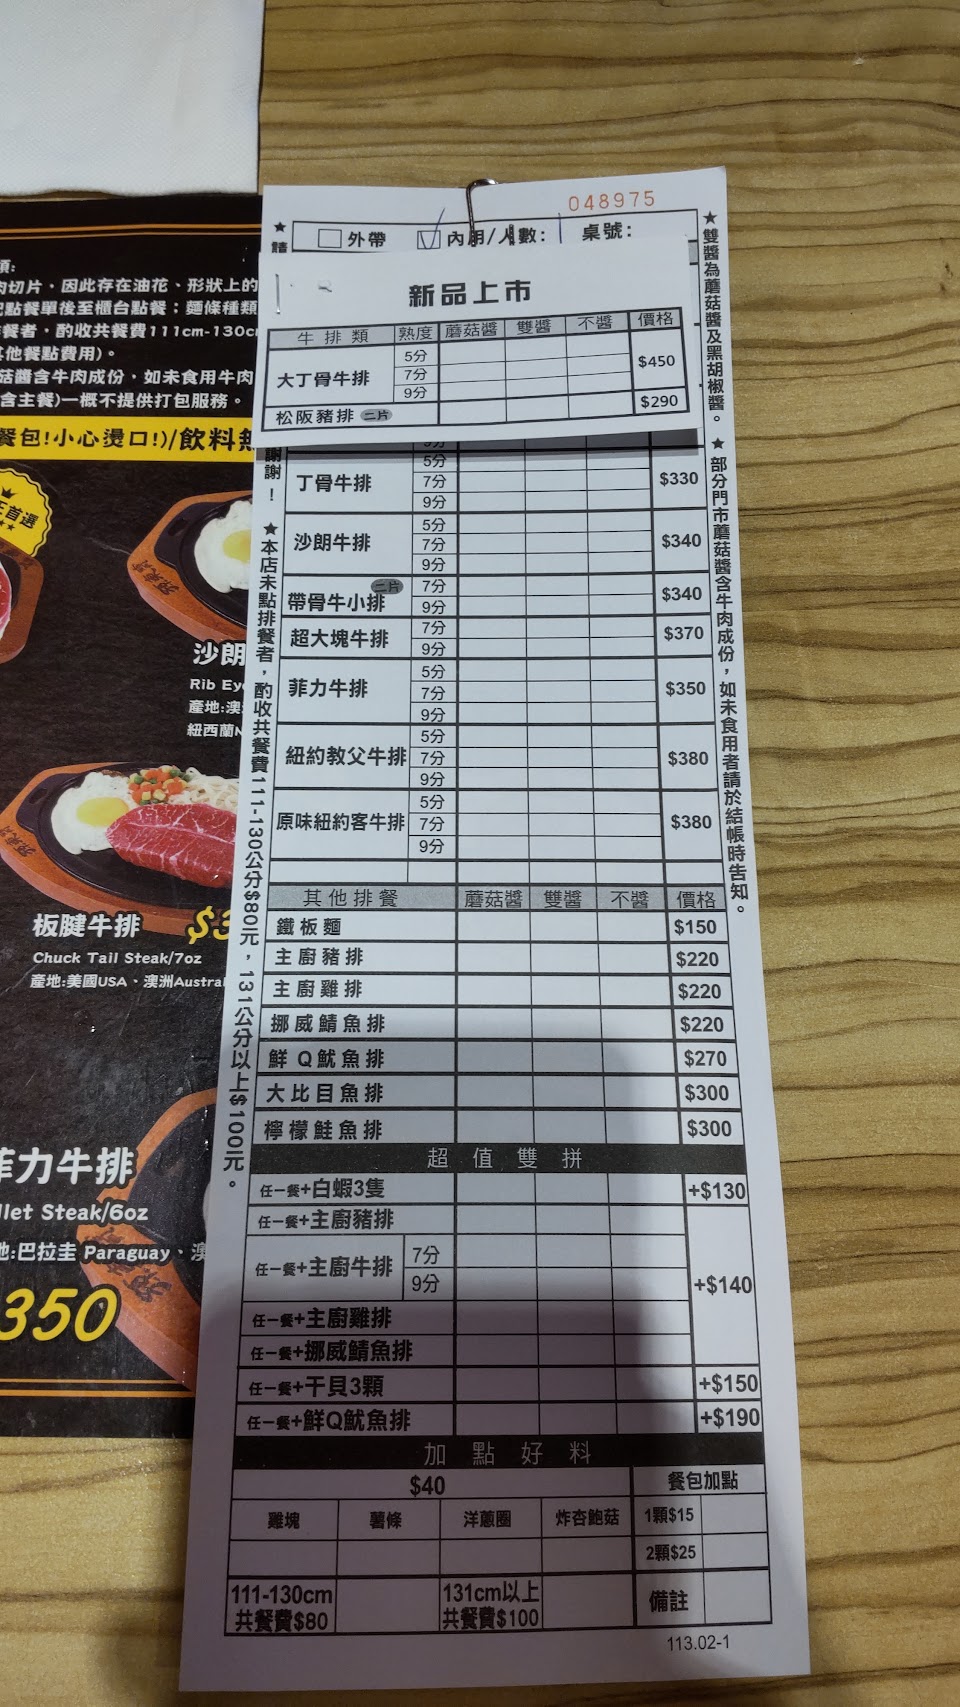 048975
外帶 內用/人數: 桌號:
新品上市
牛排類 熟度 蘑菇醬 雙醬 不醬 價格
大丁骨牛排 5分 7分 9分 $450
松阪豬排 二片 $290
丁骨牛排 5分 7分 9分 $330
沙朗牛排 5分 7分 9分 $340
帶骨牛小排 二片 7分 9分 $340
超大塊牛排 7分 9分 $370
菲力牛排 5分 7分 9分 $350
紐約教父牛排 5分 7分 9分 $380
原味紐約客牛排 5分 7分 9分 $380
其他排餐 蘑菇醬 雙醬 不醬 價格
鐵板麵 $150
主廚豬排 $220
主廚雞排 $220
挪威鯖魚排 $220
鮮Q魷魚排 $270
大比目魚排 $300
檸檬鮭魚排 $300
超值雙拼
任一餐+白蝦3隻 +$130
任一餐+主廚豬排
任一餐+主廚牛排 7分 9分 +$140
任一餐+主廚雞排
任一餐+挪威鯖魚排
任一餐+干貝3顆 +$150
任一餐+鮮Q魷魚排 +$190
加點好料
$40 餐包加點
雞塊 薯條 洋蔥圈 炸杏鮑菇 1顆$15
2顆$25
111-130cm 131cm以上 備註
共餐費$80 共餐費$100
113.02-1
★雙醬為蘑菇醬及黑胡椒醬。★部分門市蘑菇醬含牛肉成份,如未食用者請於結帳時告知。
謝!★本店未點排餐者,酌收共餐費111-130公分$80元,131公分以上$100元。
肉切片,因此存在油花、形狀上的
點餐單後至櫃台點餐;麵條種類
餐者,酌收共餐費111cm-130c
他餐點費用)。
菇醬含牛肉成份,如未食用牛肉
含主餐)一概不提供打包服務。
餐包!小心燙口!)/飲料無
首選
沙朗
Rib Ey
產地:澳
紐西蘭N
板腱牛排 $3
Chuck Tail Steak/7oz
產地:美國USA、澳洲Austra
菲力牛排
llet Steak/6oz
地:巴拉圭 Paraguay、澳
350